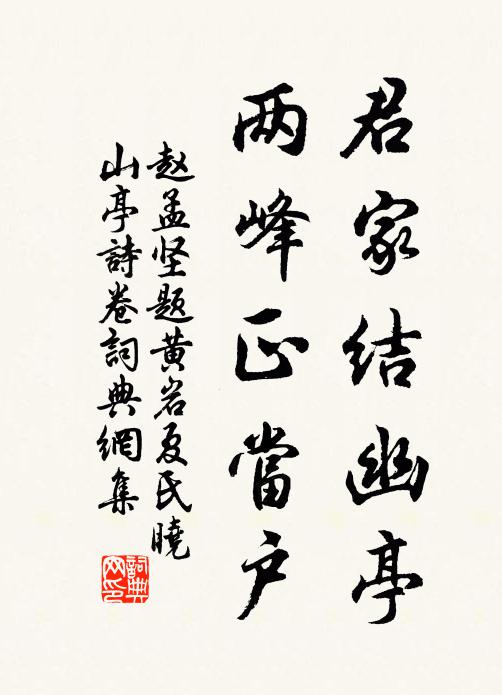 君家结幽亭
两峰正當户
赵孟坚题黄岩夏氏曉
山亭詩卷詞典網集
詞典
网印